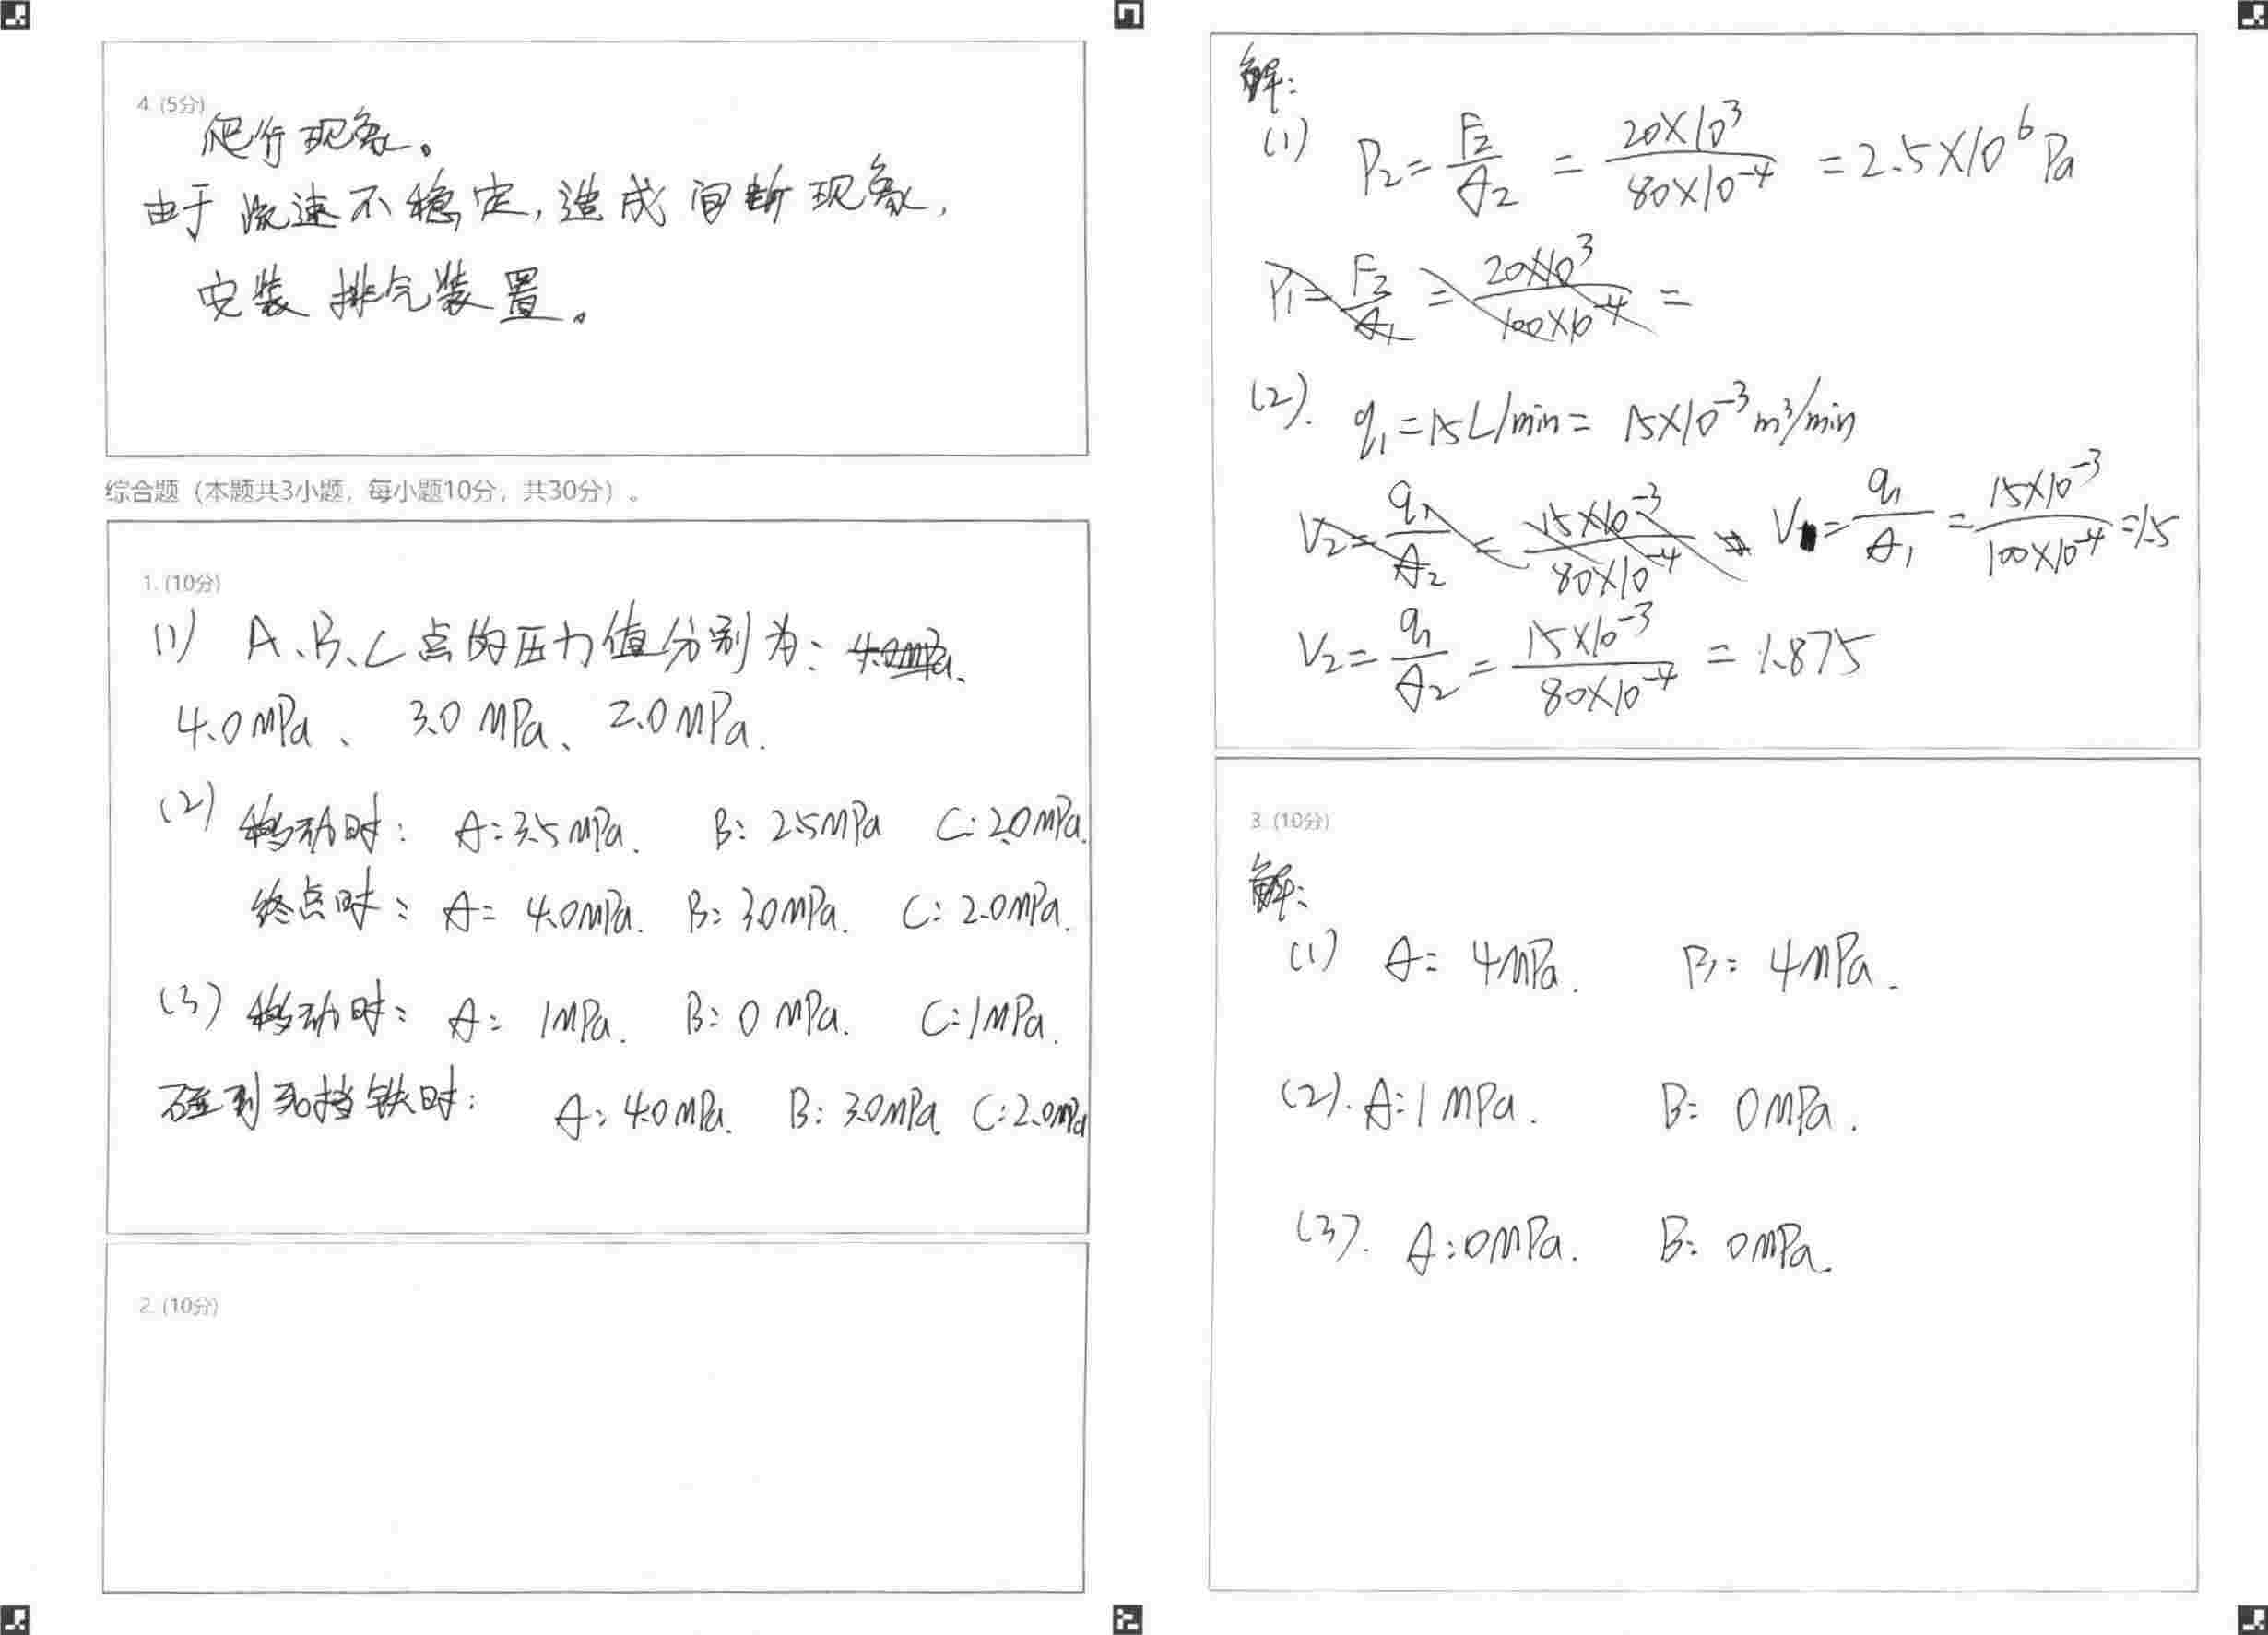 4. (5分)
爬行现象。
由于流速不稳定,造成间断现象,
安装排气装置。
综合题（本题共3小题，每小题10分，共30分）。
1. (10分)
(1) A、B、C点的压力值分别为: 4.0mPa、
4.0mPa、 3.0mPa、 2.0mPa.
(2) 移动时: A:3.5mPa. B: 2.5mPa C: 2.0mPa.
终点时: A= 4.0mPa. B: 3.0mPa. C: 2.0mPa.
(3) 移动时: A: 1mPa. B: 0 mPa. C:1mPa.
碰到死挡铁时: A: 4.0mPa. B: 3.0mPa. C:2.0mPa
2. (10分)
解:
(1) P2 = F2/A2 = 20×10³/80×10⁻⁴ = 2.5×10⁶Pa
P1 = F2/A1 = 20×10³/100×10⁻⁴ =
(2). q1 = 15L/min = 15×10⁻³ m³/min
V2 = q1/A2 = 15×10⁻³/80×10⁻⁴ = V1 = q1/A1 = 15×10⁻³/100×10⁻⁴ = 1.5
V2 = q1/A2 = 15×10⁻³/80×10⁻⁴ = 1.875
3. (10分)
解:
(1) A: 4mPa. B: 4mPa.
(2). A:1mPa. B: 0mPa.
(3). A:0mPa. B: 0mPa.